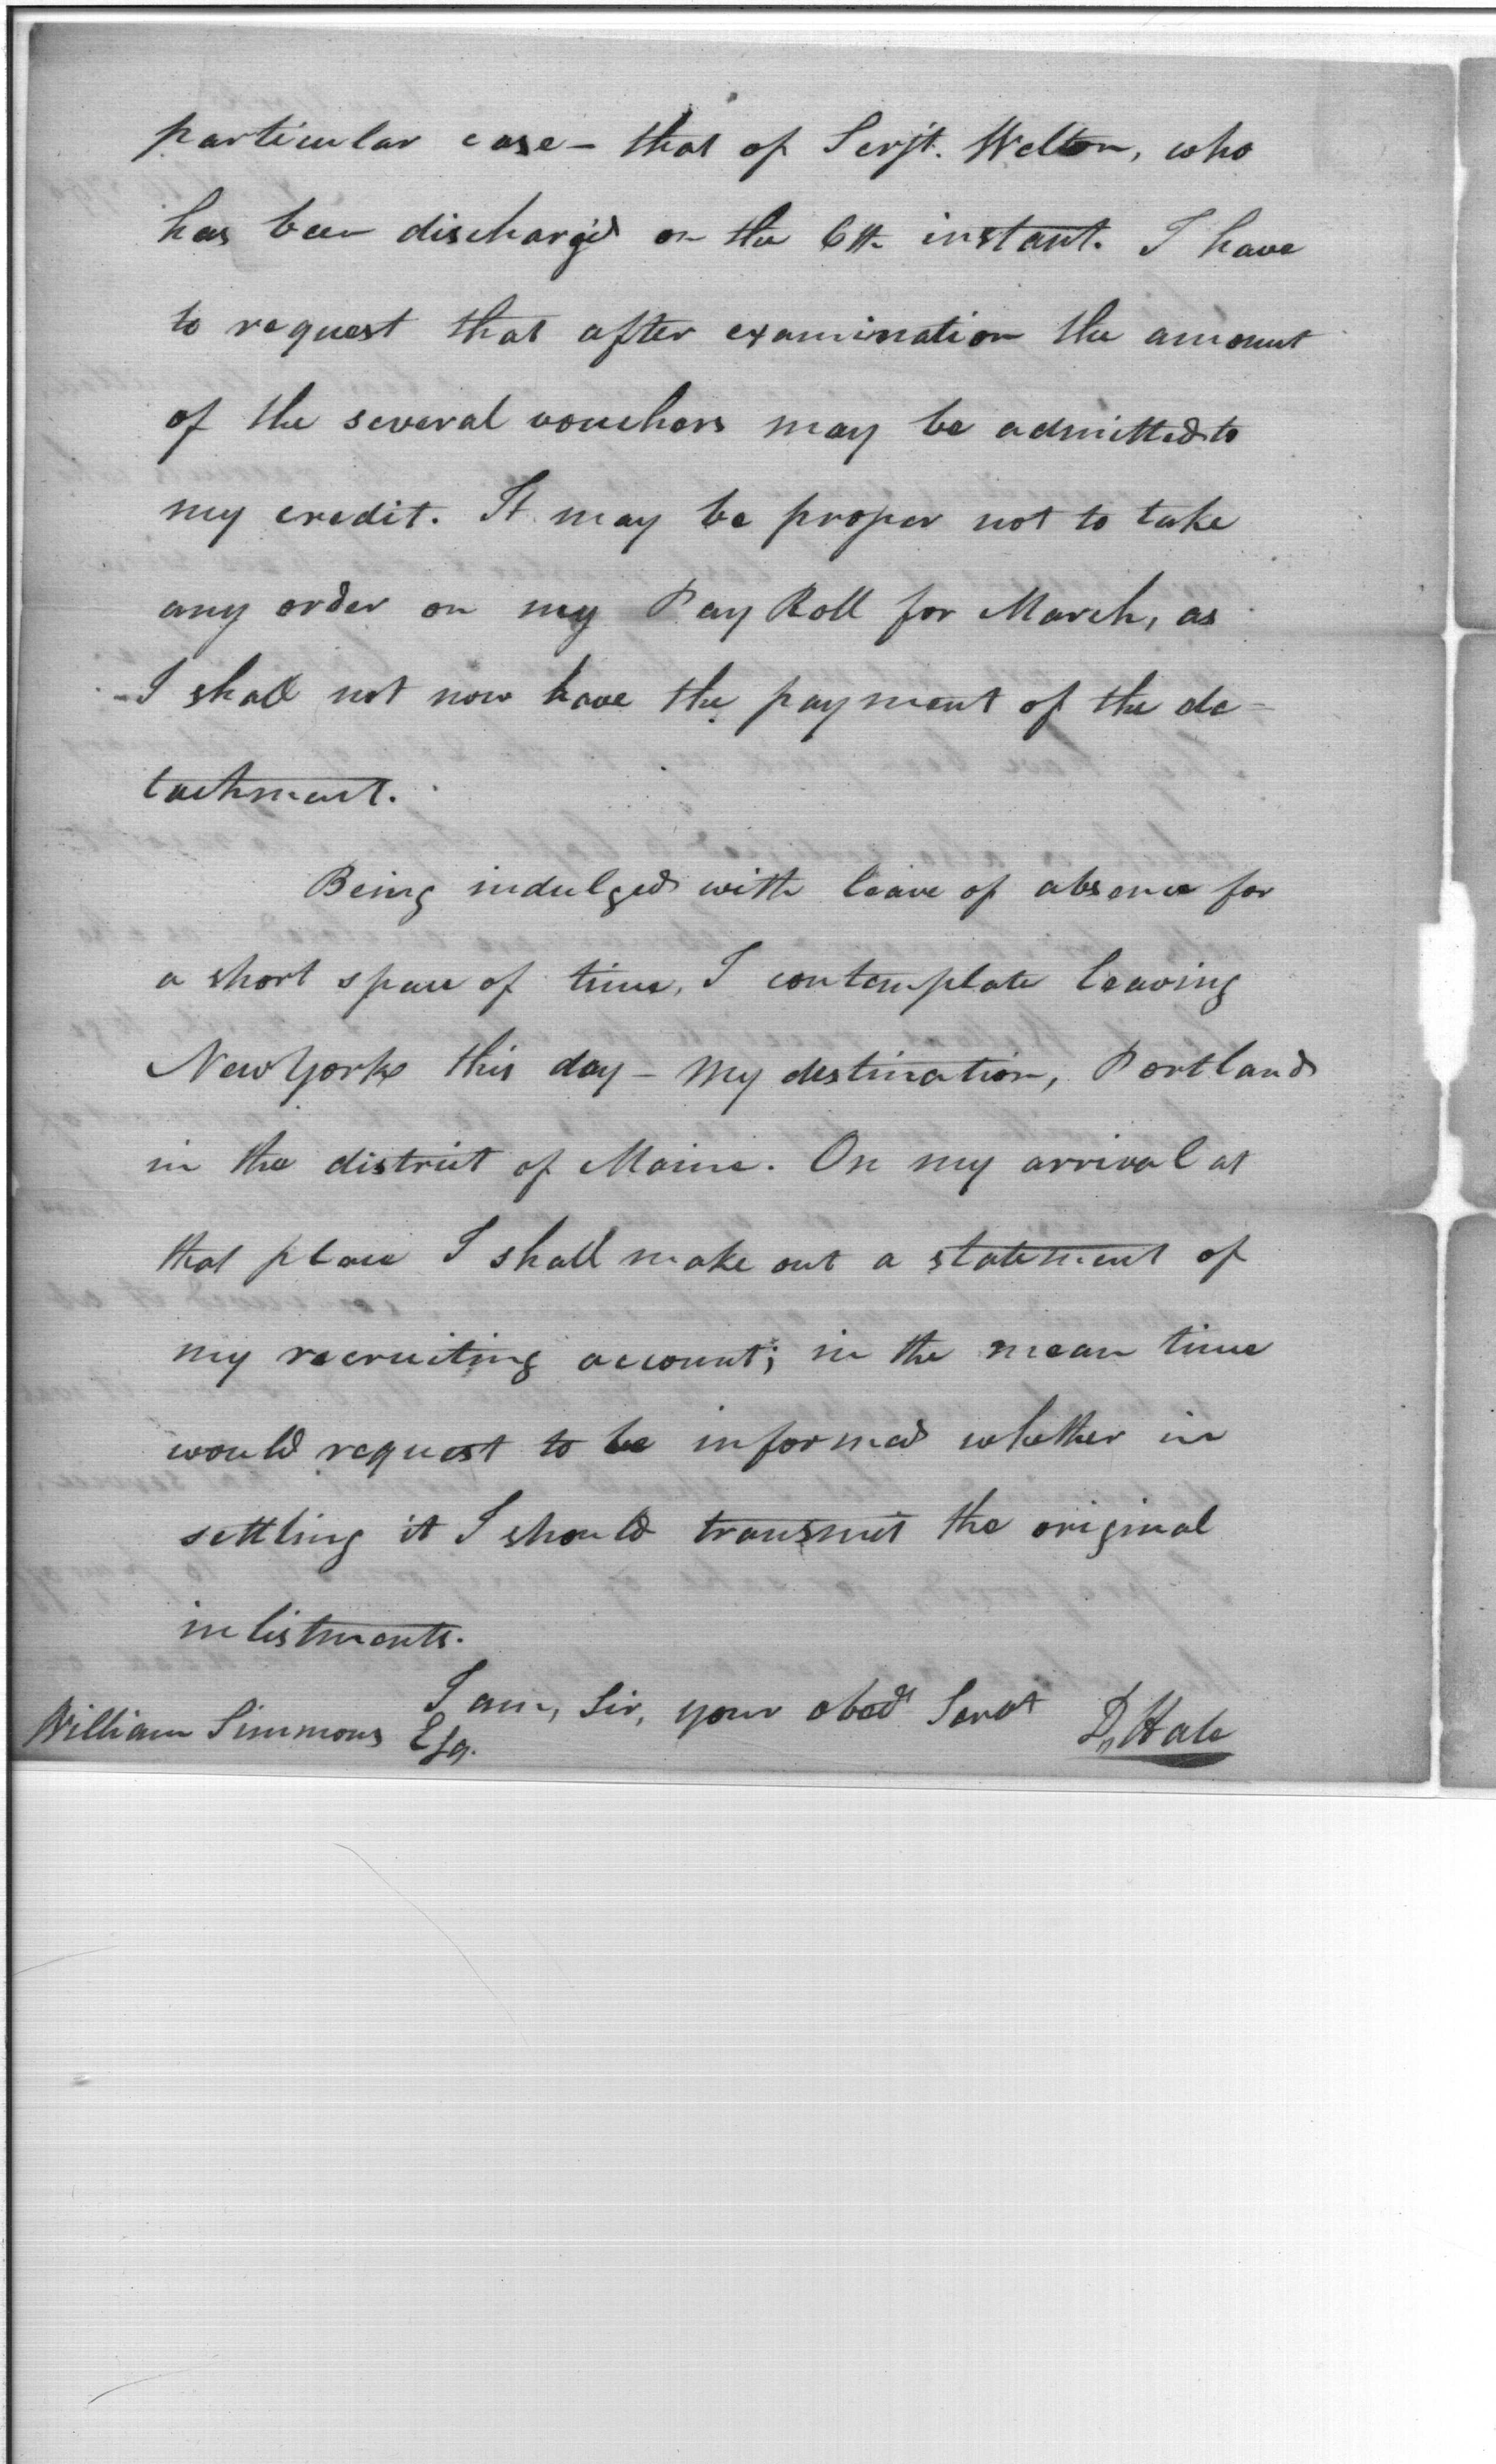 particular case - that of Serjt. Welton, who
has been discharg'd on the 6th instant. I have
to request that after examination the amount
of the several vouchers may be admitted to
my credit. It may be proper not to take
any order on my Pay Roll for March, as
I shall not now have the payment of the de-
tachment.
Being indulged with leave of absence for
a short space of time, I contemplate leaving
New York this day - My destination, Portland
in the district of Maine. On my arrival at
that place I shall make out a statement of
my recruiting account; in the mean time
would request to be informed whether in
settling it I should transmit the original
inlistments.
I am, Sir, your obedt Servt
D, Hale
William Simmons Esq.